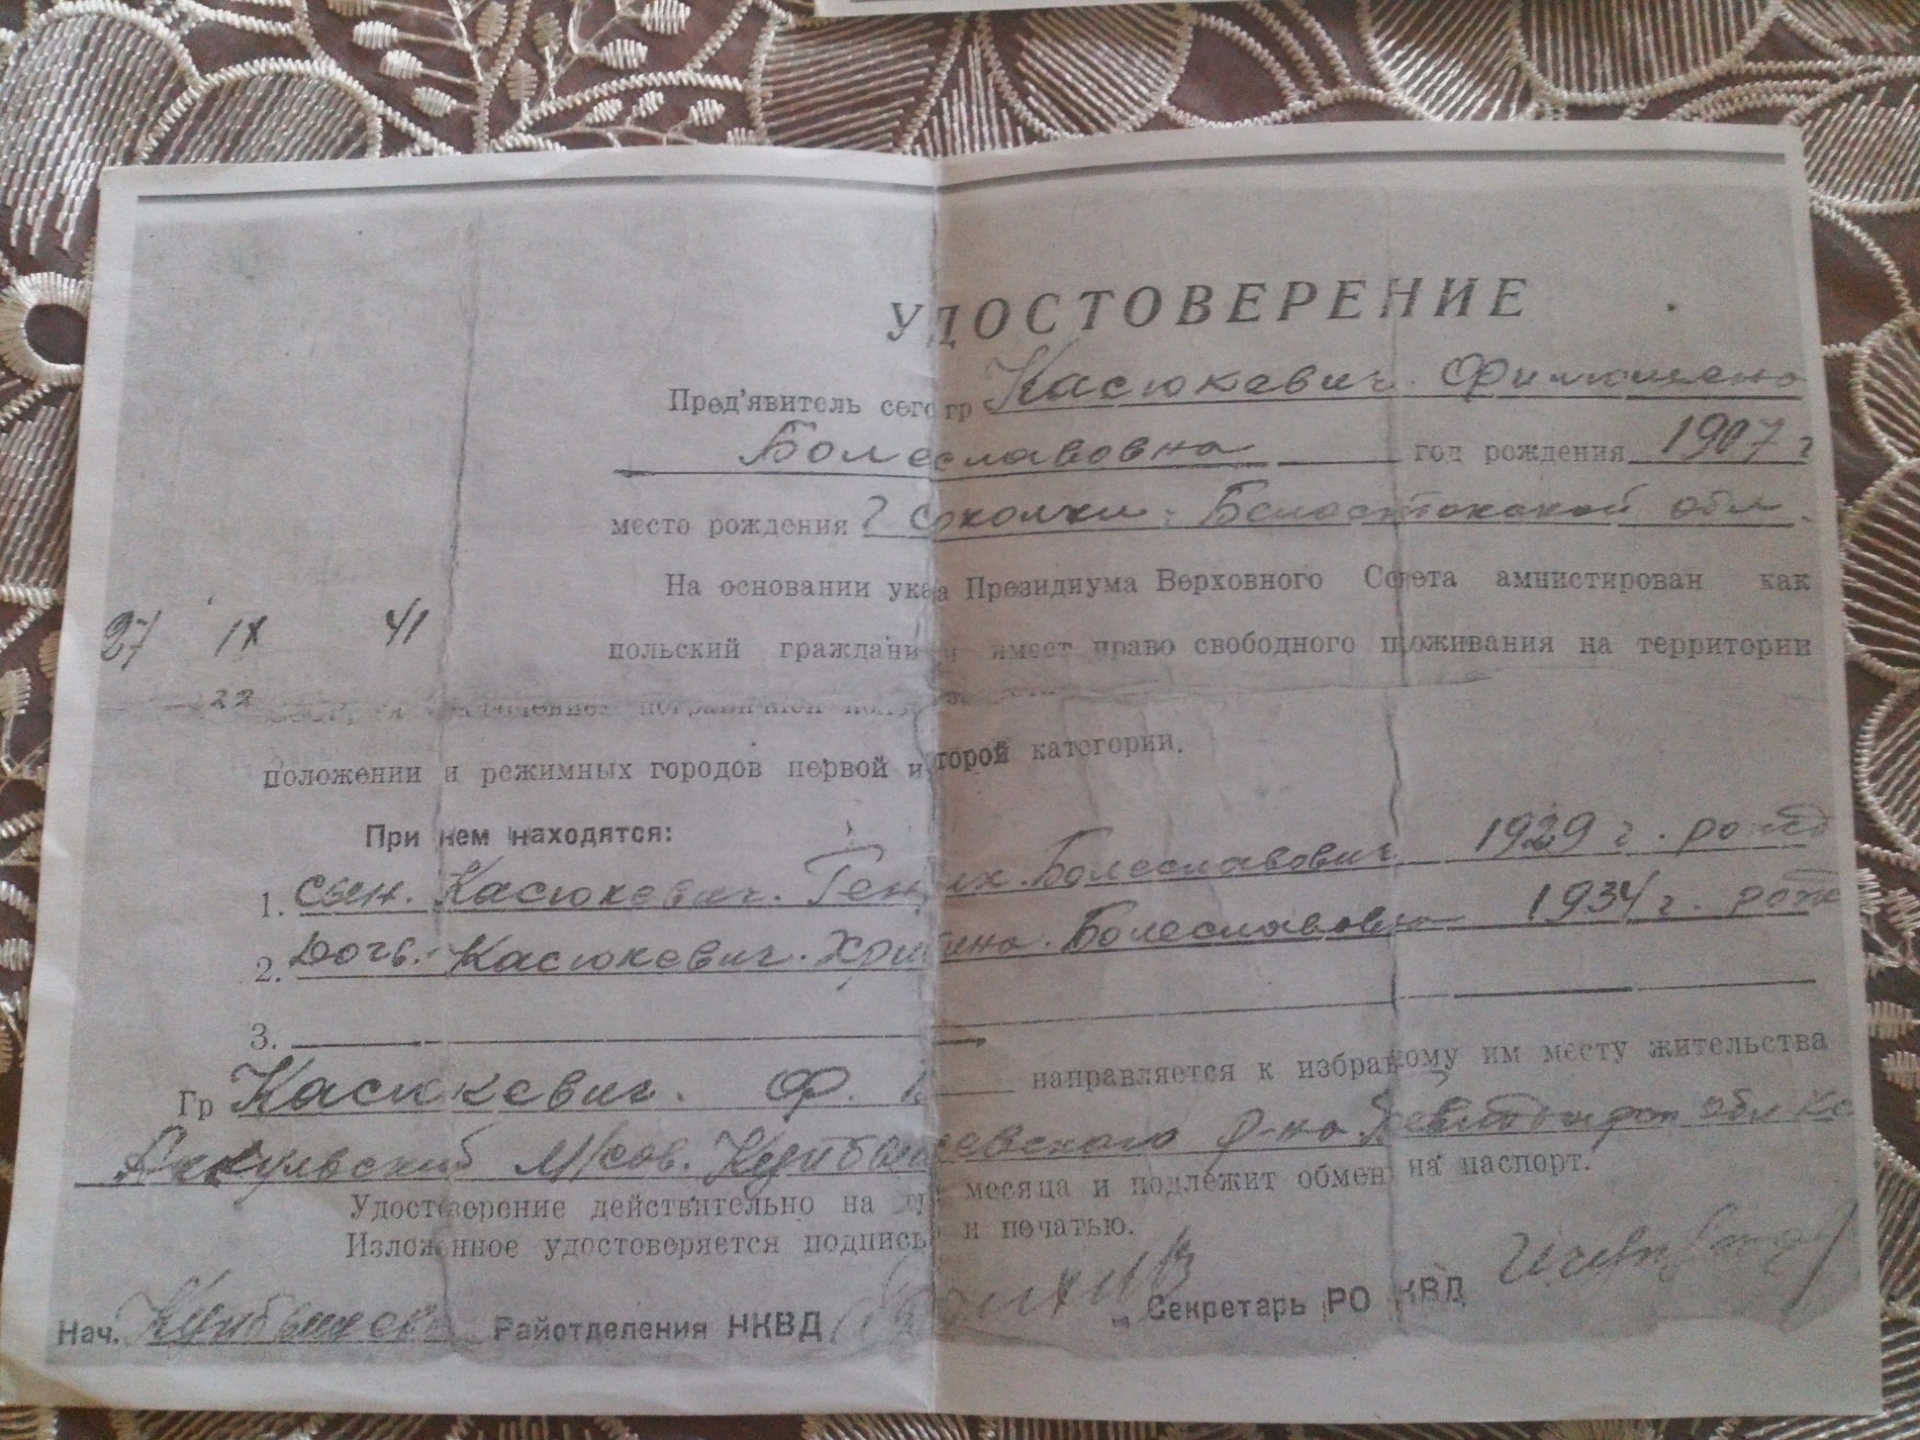 УДОСТОВЕРЕНИЕ
Пред'явитель сего гр Касюкевич.
Болеславовна год рождения 1907 г
место рождения г Соколки. Белостокской обл.
На основании указа Президиума Верховного Совета амнистирован как
27 IX 41
польский гражданин и имеет право свободного проживания на территории
22
положении и режимных городов первой и второй категории.
При нем находятся:
1. сын. Касюкевич. Генрих. Болеславович 1929 г. рожд
2. Дочь. Касюкевич. Христина. Болеславовна 1934 г. рож
3.
Гр Касюкевич. Ф. Б направляется к избранному им месту жительства
М/сов. Куйбышевского р-на обл
Удостоверение действительно на месяца и подлежит обмену на паспорт.
Изложенное удостоверяется подписью и печатью.
Нач. Куйбышевск Райотделения НКВД Секретарь РО НКВД